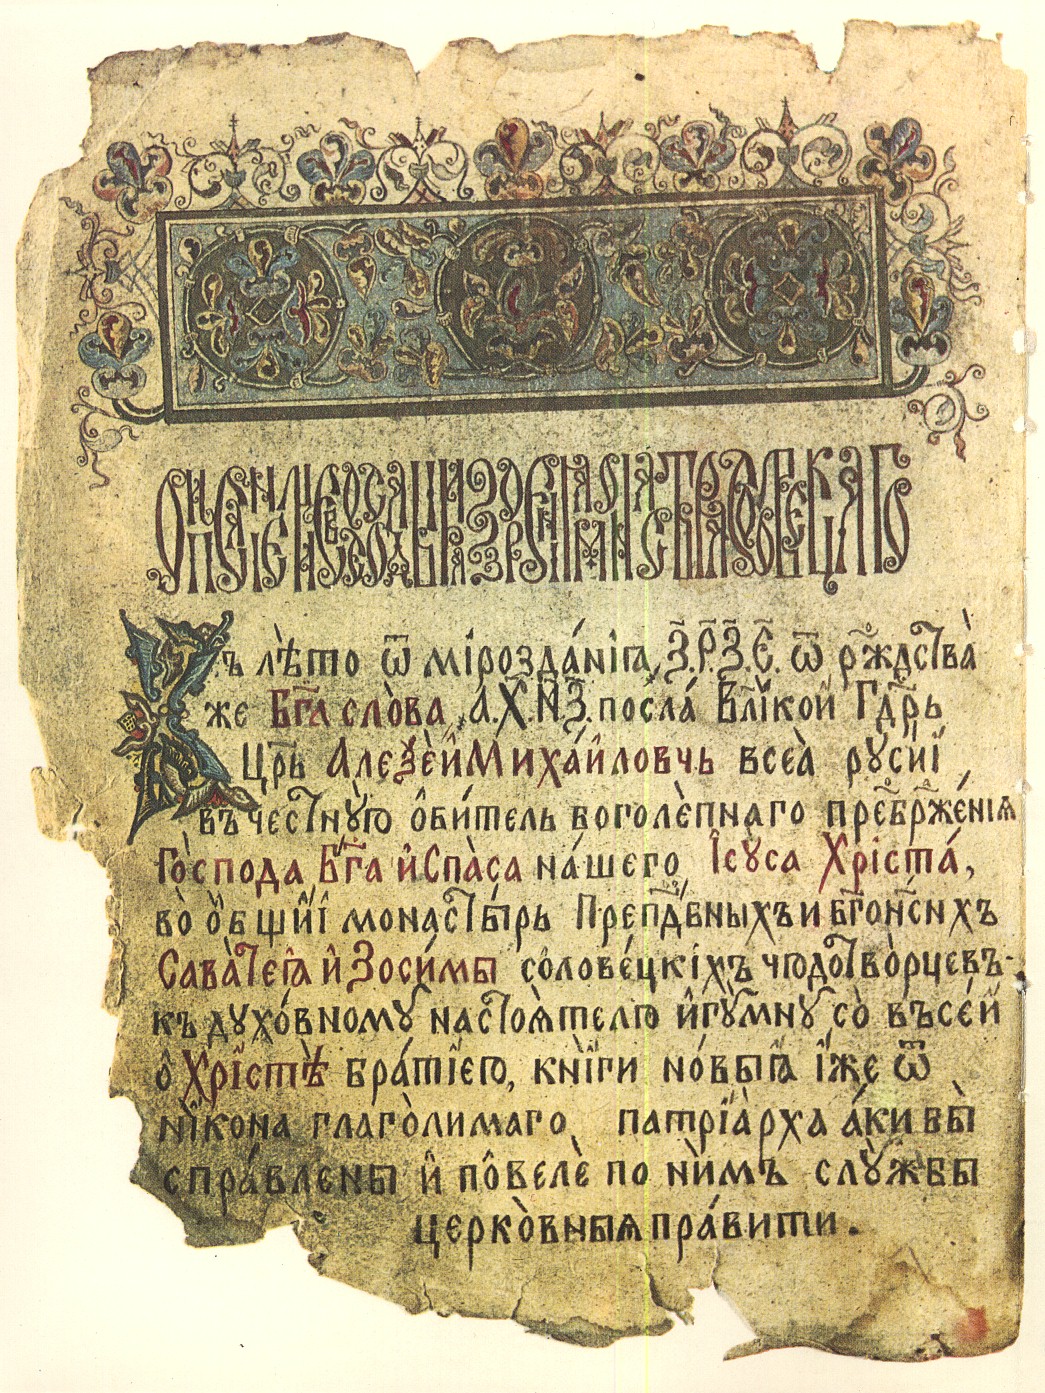 Въ лѣто ѿ мірозданіѧ ҂З.Р.З.Є. ѿ рⷤждства
же Бг҃а слова ҂А.Х.Н.З. посла Вл҃икой Гдр҃ь
Цр҃ь Алеѯей Михайловчь всеа русиї
въ честную обитель боголепнаго преⷪбрⷤженія
Господа Бг҃а и Спаса нашего Ісуса Христа,
во общиї монастырь Препⷣбныхъ и бг҃онⷭнхъ
Саватеѧ и Зосимы соловецкіхъ чюдотворцевъ
къ духовному настоѧтелю игумну со въсей
о Христѣ братиею, книги новыѧ иже ѿ
никона глаголимаго патриарха аки бы
справлены и повеле по нимъ службы
церковныѧ правити.